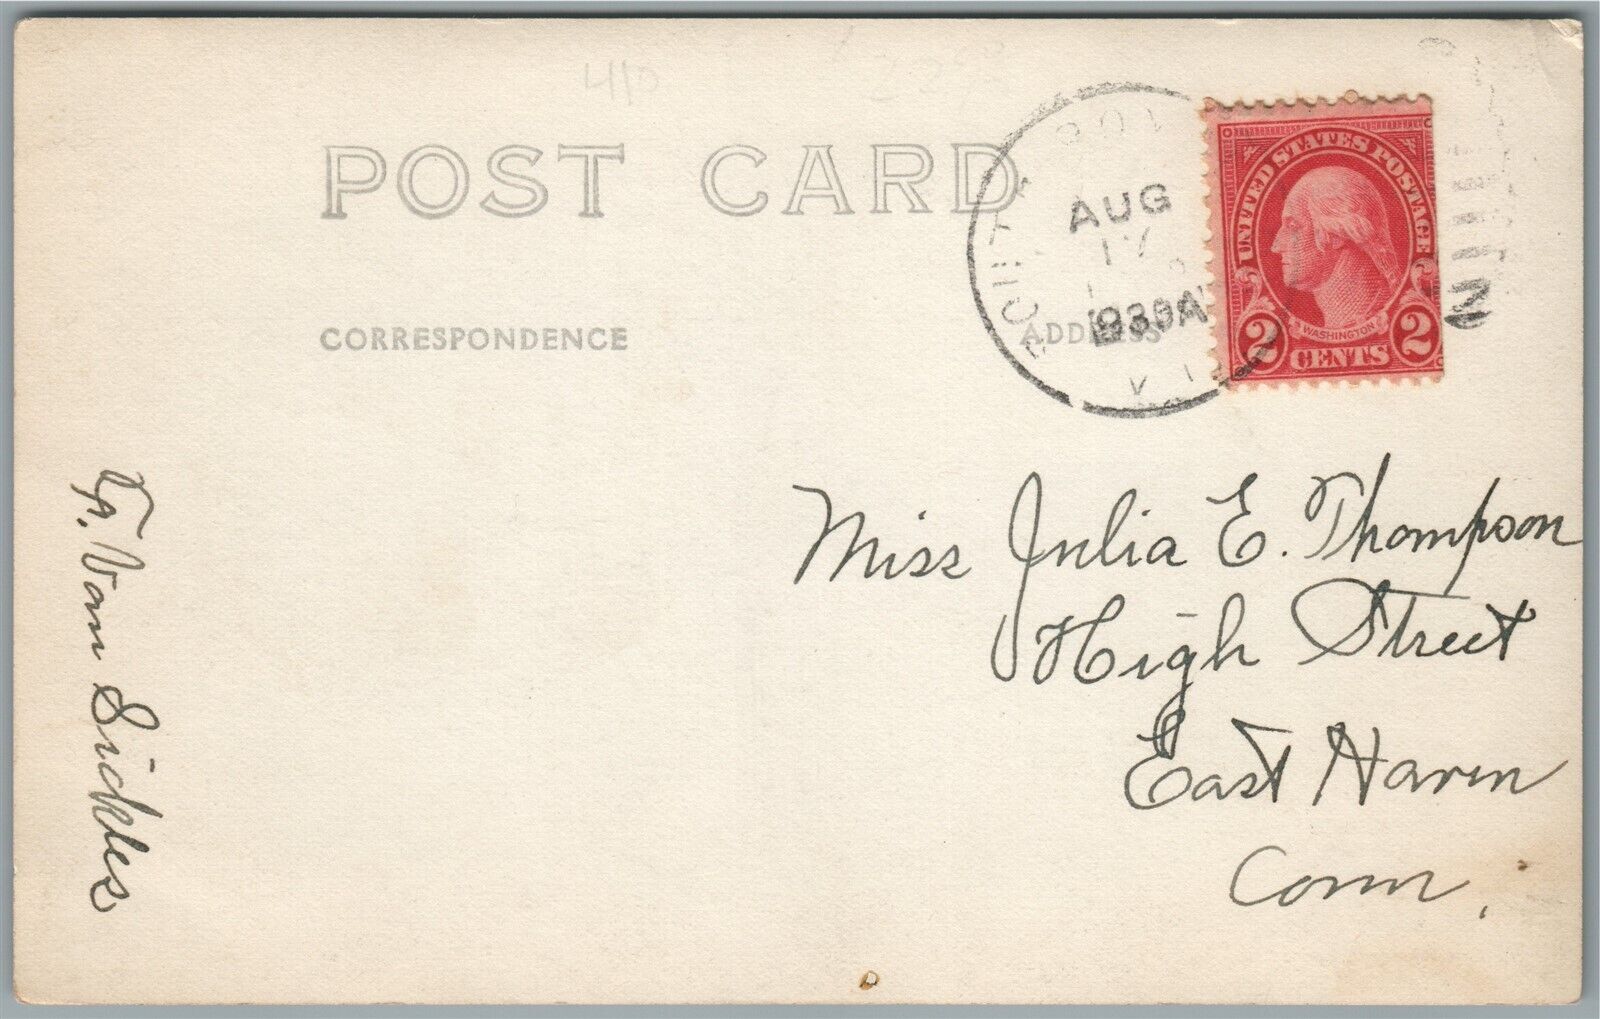 410
POST CARD
AUG
17
1930
UNITED STATES POSTAGE
WASHINGTON
2 CENTS 2
CORRESPONDENCE
ADDRESS
Miss Julia E. Thompson
High Street
East Haven
Conn.
Van Sickles